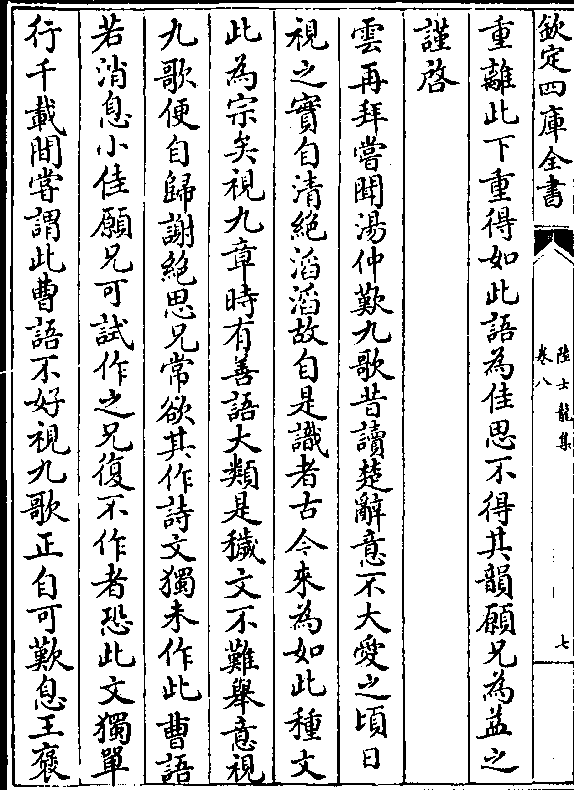 欽定四庫全書
陸士龍集
卷八
七
重離此下重得如此語為佳思不得其韻願兄為益之
謹啓
雲再拜嘗聞湯仲歎九歌昔讀楚辭意不大愛之頃日
視之實自清絶滔滔故自是識者古今來為如此種文
此為宗矣視九章時有善語大類是穢文不難舉意視
九歌便自歸謝絶思兄常欲其作詩文獨未作此曹語
若消息小佳願兄可試作之兄復不作者恐此文獨單
行千載間嘗謂此曹語不好視九歌正自可歎息王襃